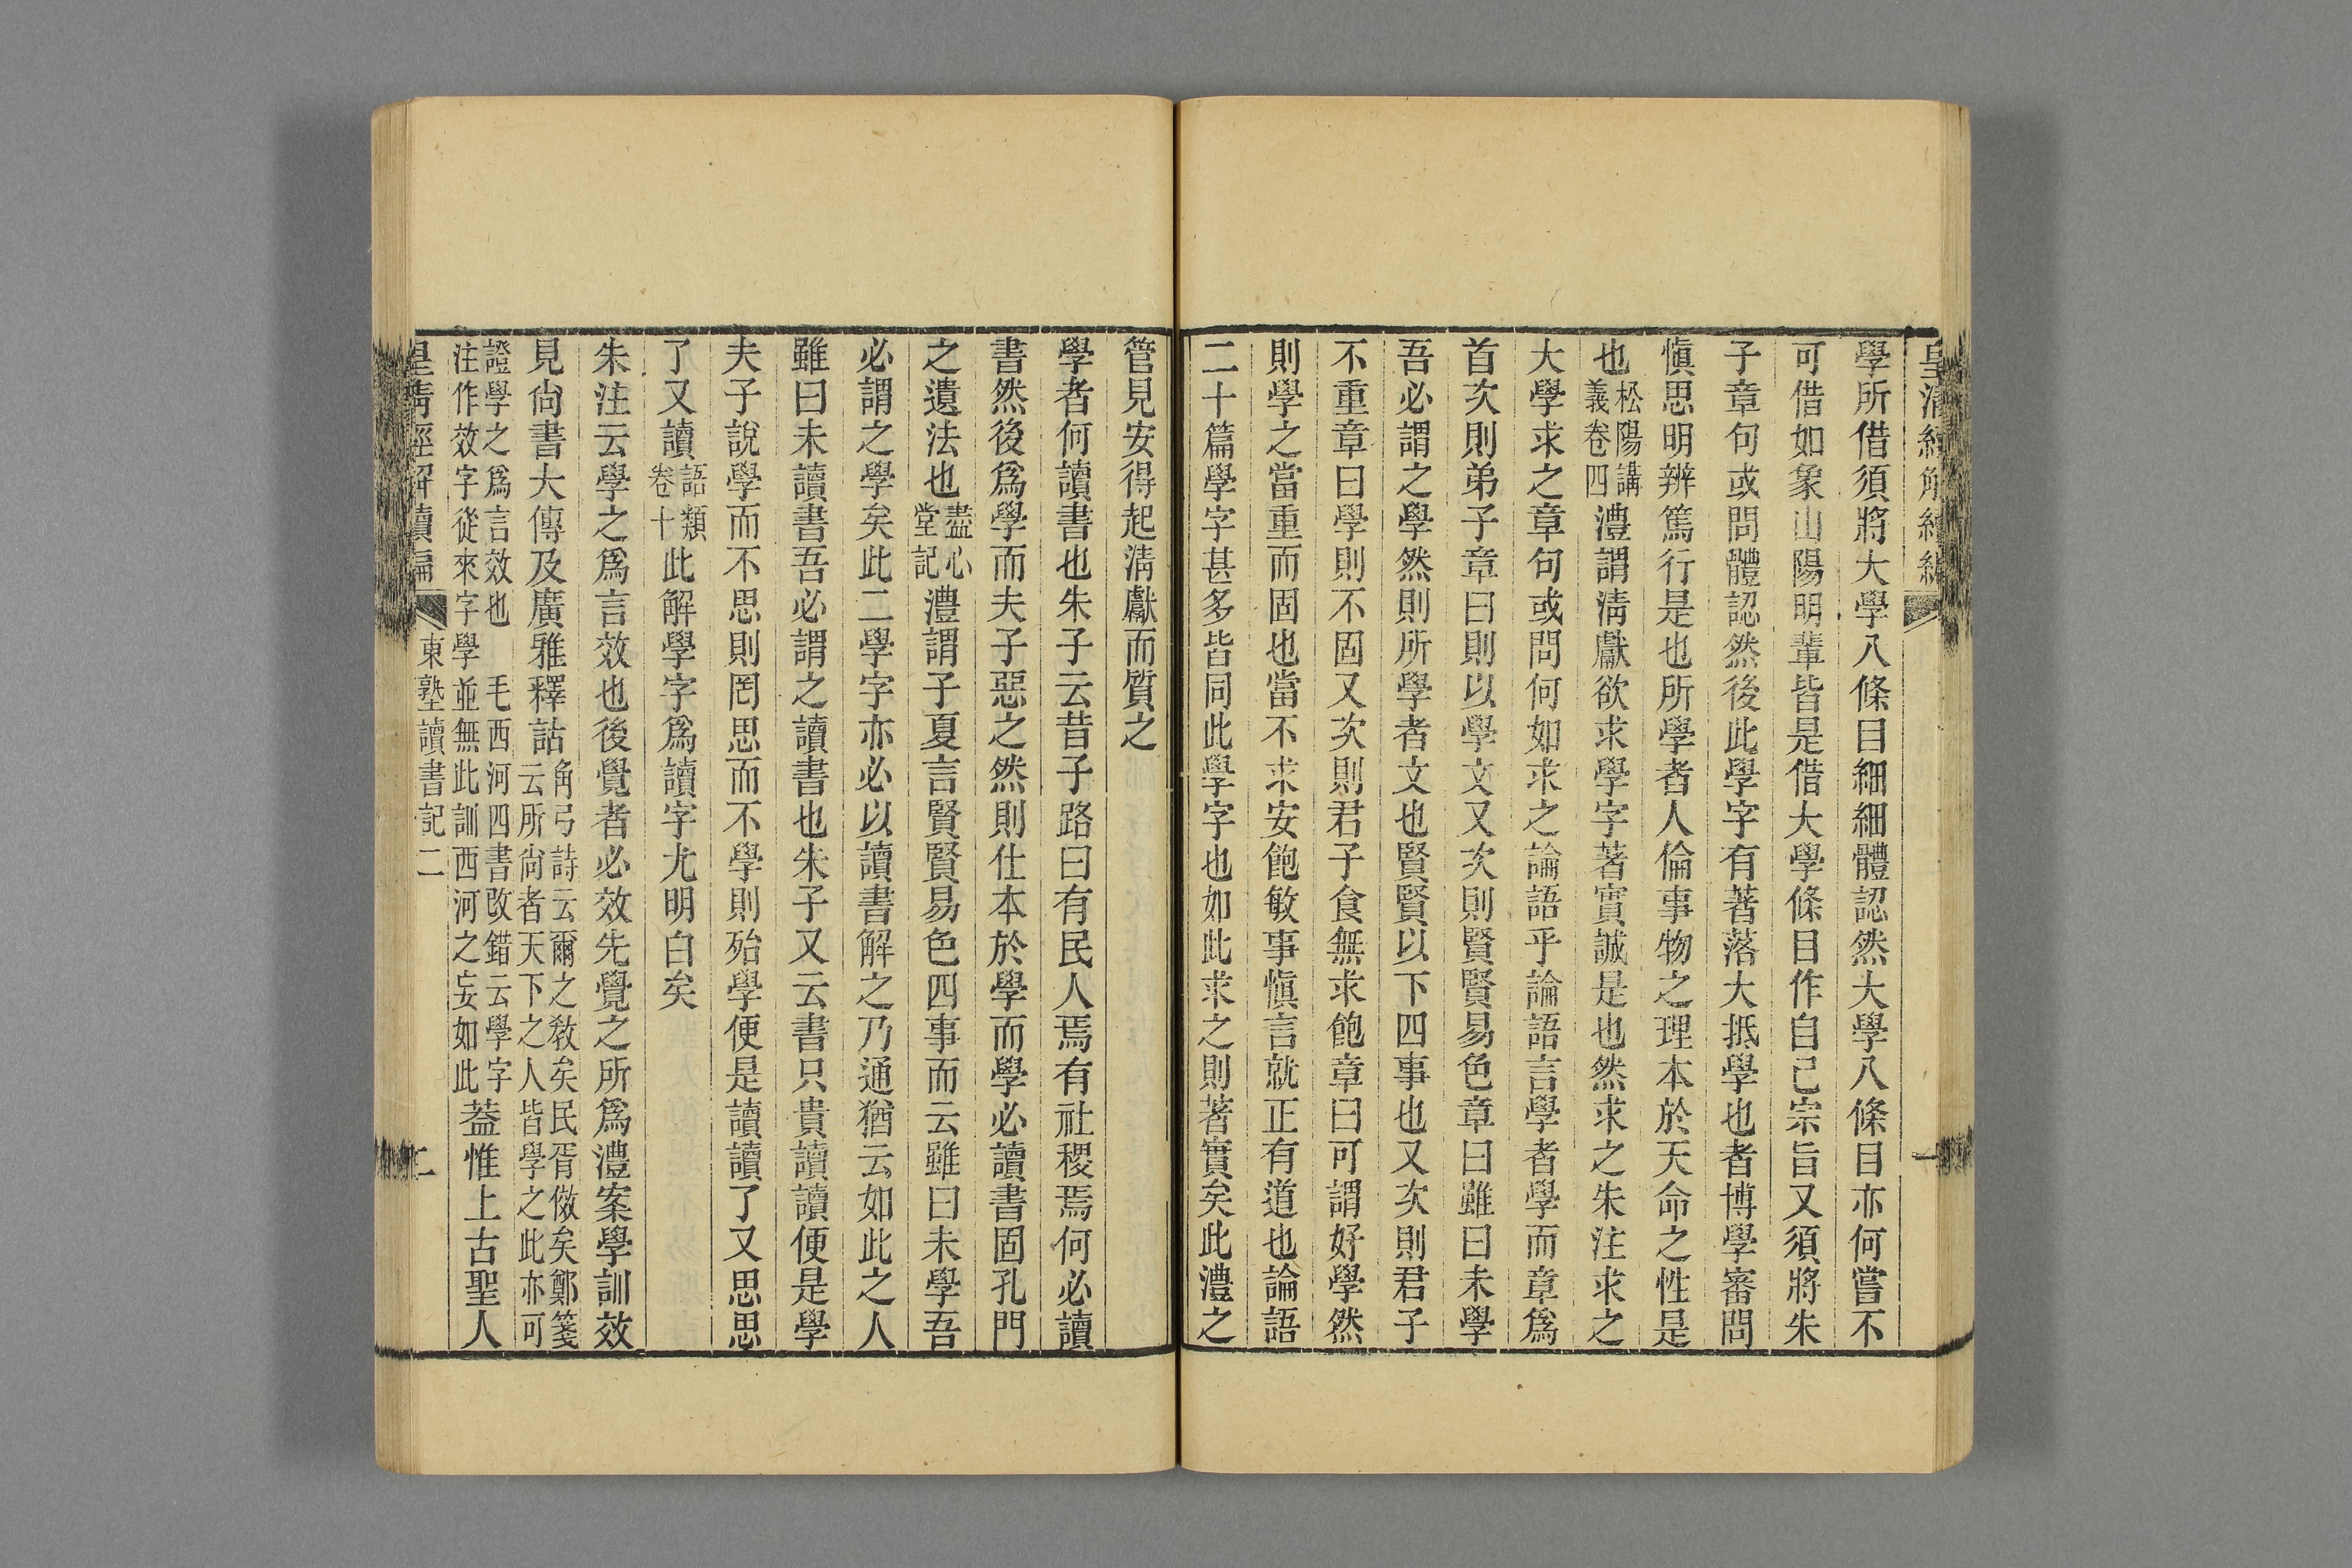 皇清經解續編
一
學所借須將大學八條目細細體認然大學八條目亦何嘗不
可借如象山陽明輩皆是借大學條目作自己宗旨又須將朱
子章句或問體認然後此學字有著落大抵學也者博學審問
愼思明辨篤行是也所學者人倫事物之理本於天命之性是
也松陽講義卷四澧謂淸獻欲求學字著實誠是也然求之朱注求之
大學求之章句或問何如求之論語乎論語言學者學而章爲
首次則弟子章曰則以學文又次則賢賢易色章曰雖曰未學
吾必謂之學然則所學者文也賢賢以下四事也又次則君子
不重章曰學則不固又次則君子食無求飽章曰可謂好學然
則學之當重而固也當不求安飽敏事愼言就正有道也論語
二十篇學字甚多皆同此學字也如此求之則著實矣此澧之
管見安得起淸獻而質之
學者何讀書也朱子云昔子路曰有民人焉有社稷焉何必讀
書然後爲學而夫子惡之然則仕本於學而學必讀書固孔門
之遺法也盡心堂記澧謂子夏言賢賢易色四事而云雖曰未學吾
必謂之學矣此二學字亦必以讀書解之乃通猶云如此之人
雖曰未讀書吾必謂之讀書也朱子又云書只貴讀讀便是學
夫子說學而不思則罔思而不學則殆學便是讀讀了又思思
了又讀語類卷十此解學字爲讀字尤明白矣
朱注云學之爲言效也後覺者必效先覺之所爲澧案學訓效
見尙書大傳及廣雅釋詁角弓詩云爾之敎矣民胥傚矣鄭箋云所尙者天下之人皆學之此亦可
證學之爲言效也　毛西河四書改錯云學字注作效字從來字學並無此訓西河之妄如此葢惟上古聖人
皇淸經解續編
東塾讀書記二
二